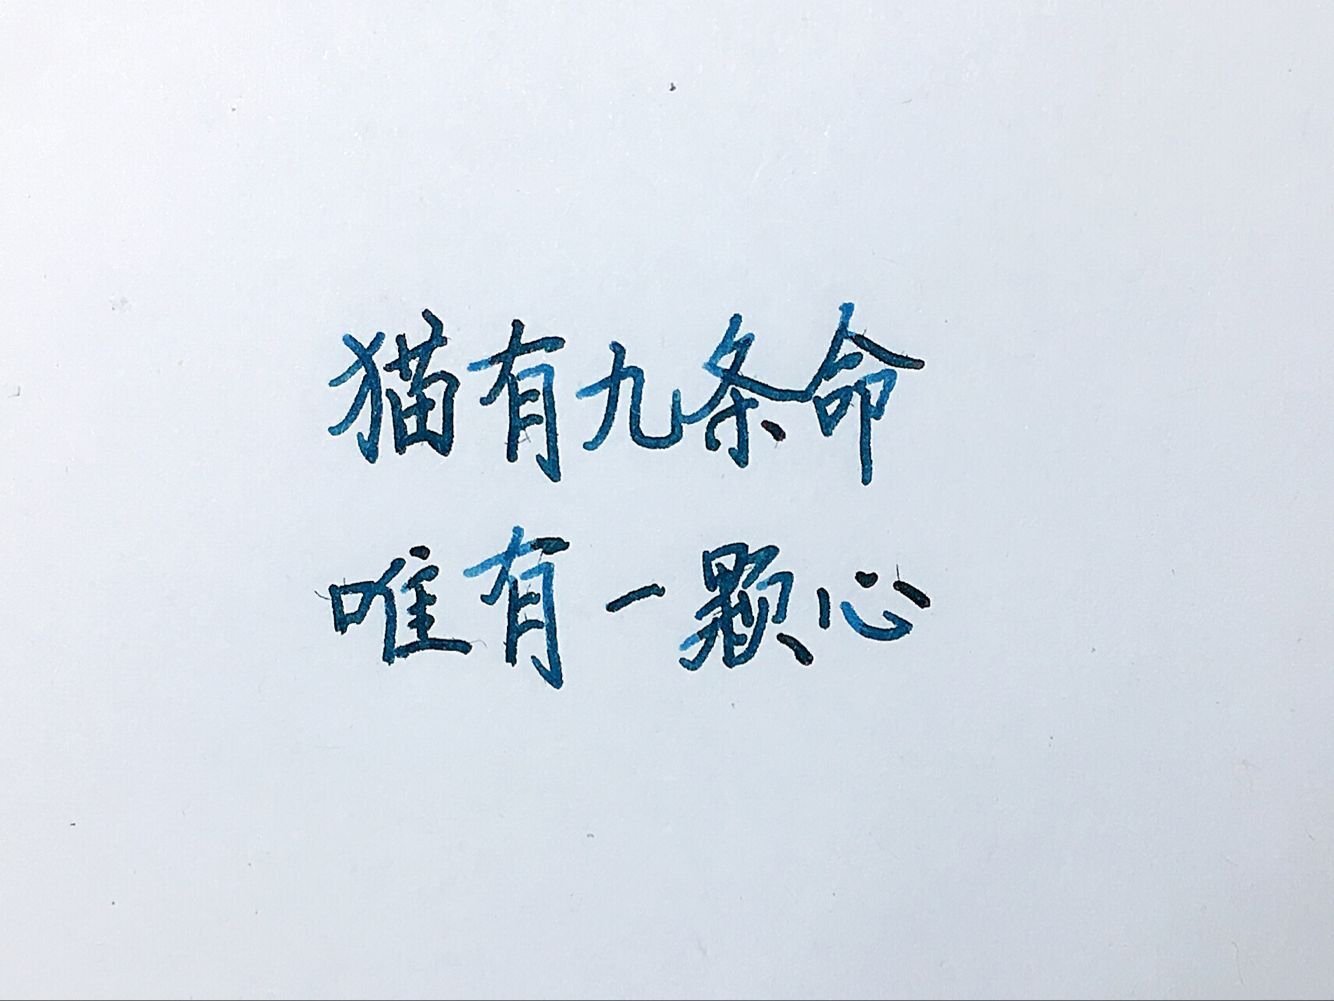 猫有九条命
唯有一颗心